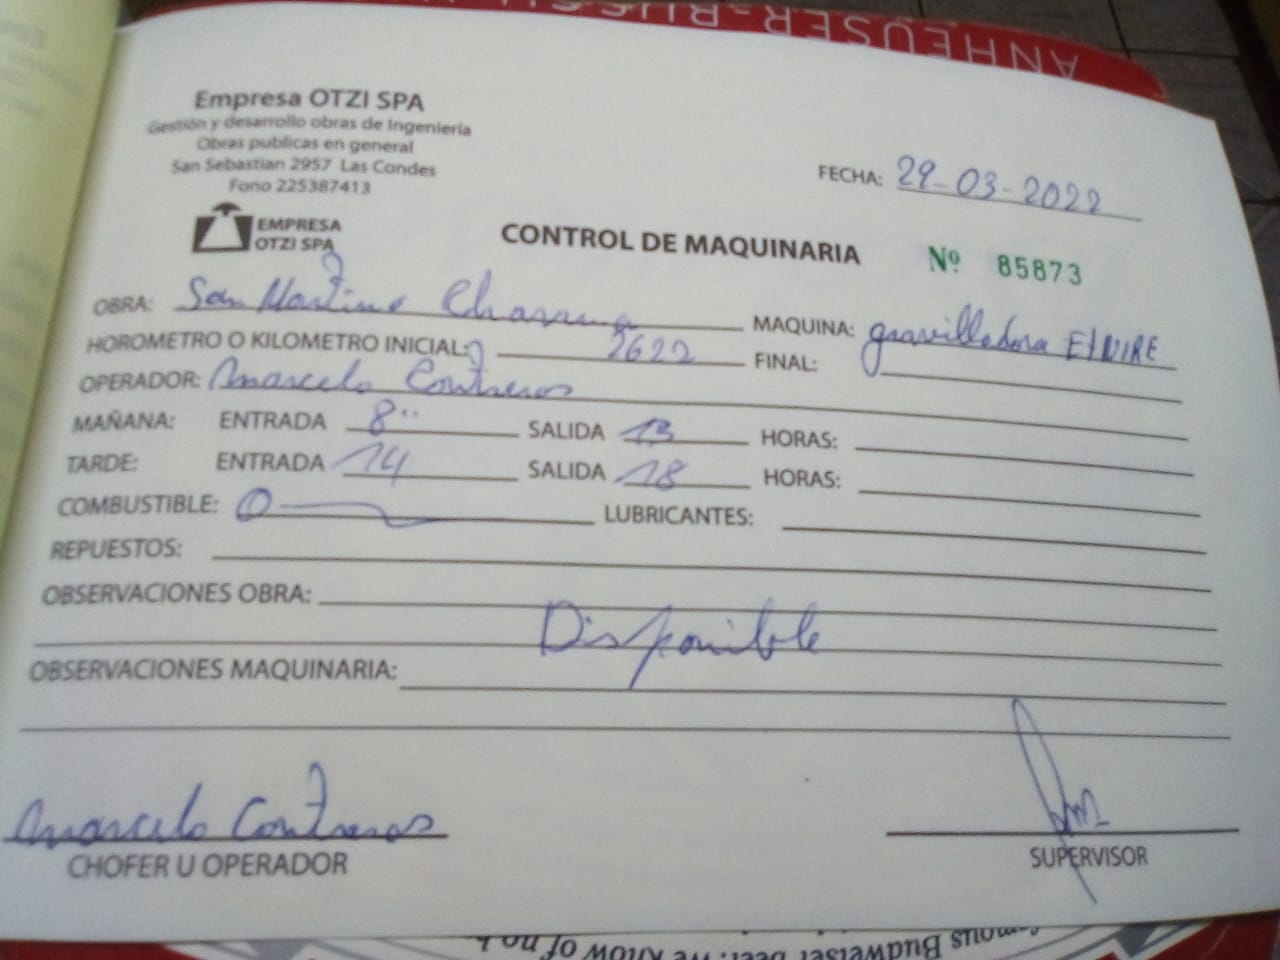 ANHEUSER-BUSCH
Empresa OTZI SPA
Gestión y desarrollo obras de Ingeniería
Obras publicas en general
San Sebastian 2957 Las Condes
Fono 225387413
EMPRESA
OTZI SPA
FECHA: 29-03-2022
CONTROL DE MAQUINARIA Nº 85873
OBRA: San Martino MAQUINA: gravilladora
HOROMETRO O KILOMETRO INICIAL: 2622 FINAL:
OPERADOR: Marcelo Contreras
MAÑANA: ENTRADA 8" SALIDA 13 HORAS:
TARDE: ENTRADA 14 SALIDA 18 HORAS:
COMBUSTIBLE: 0 LUBRICANTES:
REPUESTOS:
OBSERVACIONES OBRA:
Disponible
OBSERVACIONES MAQUINARIA:
Marcelo Contreras
CHOFER U OPERADOR SUPERVISOR
famous Budweiser beer. We know of no